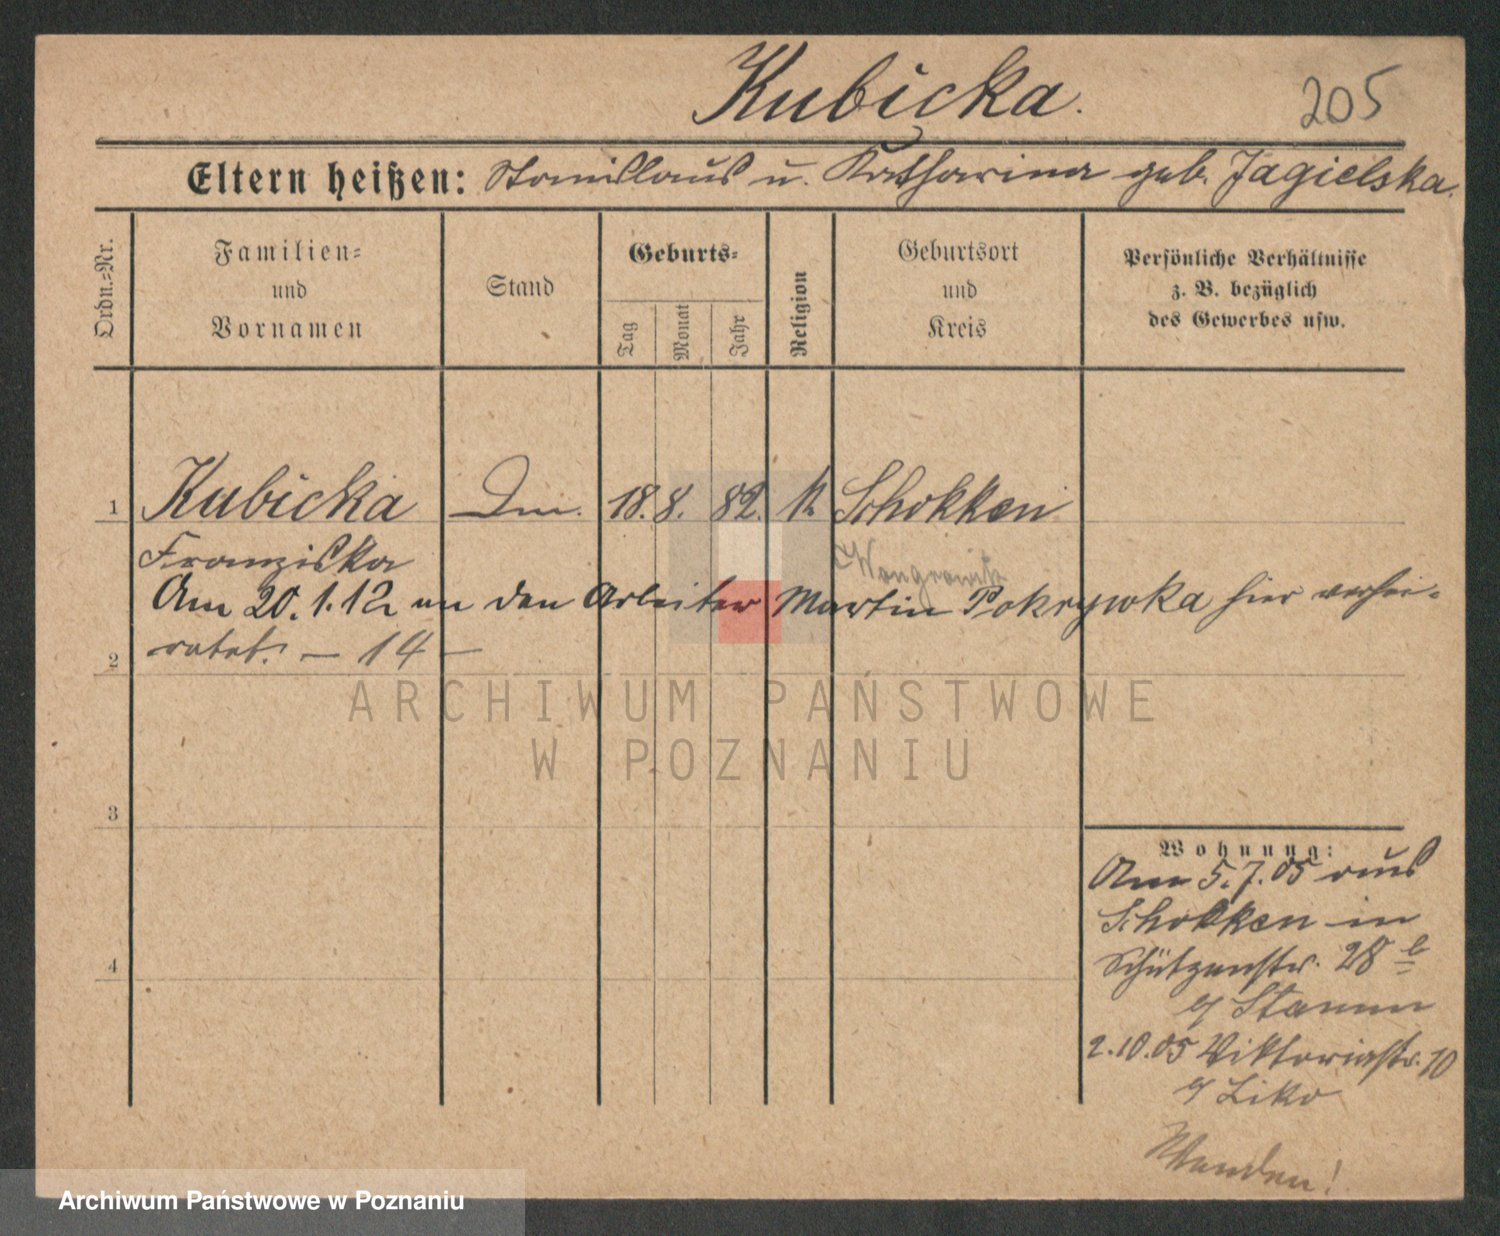 Kubicka.
205
Eltern heißen: Stanislaus u. Katharina geb. Jagielska.
Ordn.=Nr.
Familien=
und
Vornamen
Stand
Geburts=
Tag
Monat
Jahr
Religion
Geburtsort
und
Kreis
Persönliche Verhältnisse
z. B. bezüglich
des Gewerbes usw.
1 Kubicka 18. 8. 82. k. Schokken
Franziska
Wongrowitz
Am 20.1.12 an den Arbeiter Martin Pokrywka hier verhei-
ratet. – 14 –
2
3
4
Wohnung:
Am 5.7.05 aus
Schokken in
Schützenstr. 28 b
b/ Stamm
2.10.05 Viktoriastr. 10
b/ Liko
Wenden!
ARCHIWUM PAŃSTWOWE
W POZNANIU
Archiwum Państwowe w Poznaniu